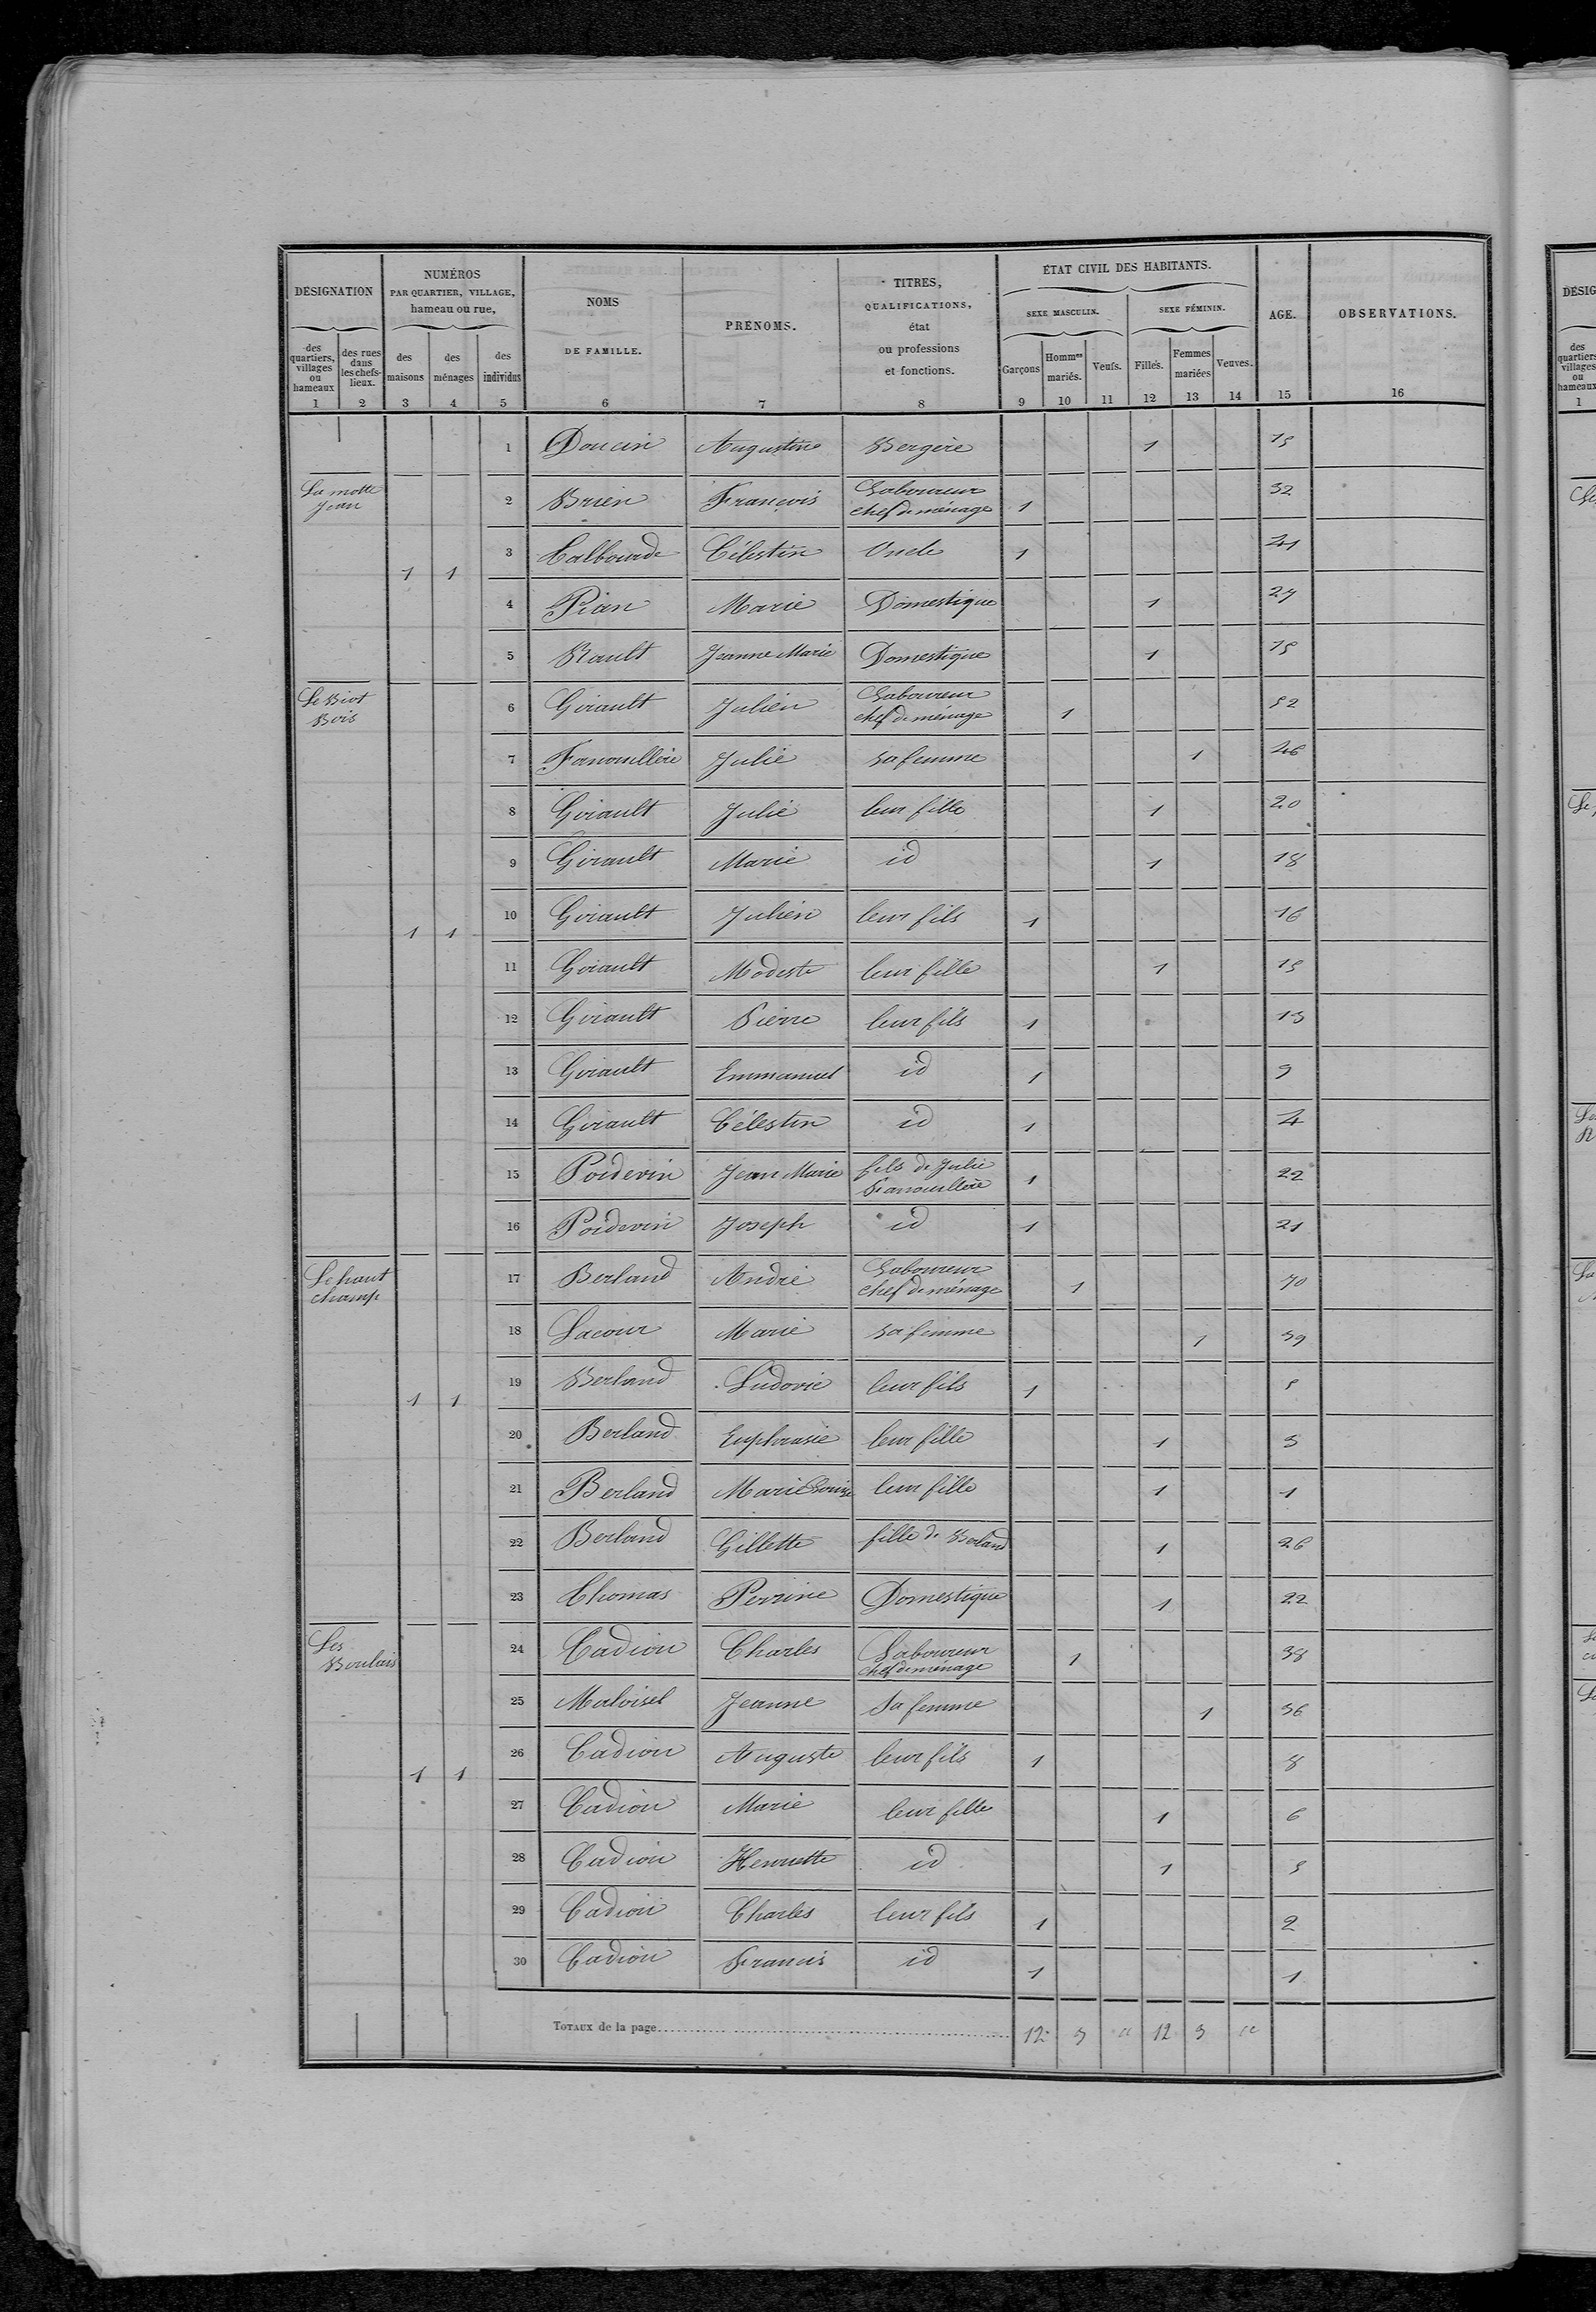 DESIGNATION
NUMÉROS
PAR QUARTIER, VILLAGE,
hameau ou rue,
NOMS
DE FAMILLE.
PRÉNOMS.
TITRES,
QUALIFICATIONS,
état
ou professions
et fonctions.
ÉTAT CIVIL DES HABITANTS.
SEXE MASCULIN.
SEXE FÉMININ.
AGE.
OBSERVATIONS.
des quartiers, villages ou hameaux
des rues dans les chefs-lieux.
des maisons
des ménages
des individus
Garçons
Hommes mariés.
Veufs.
Filles.
Femmes mariées
Veuves.
1 2 3 4 5 6 7 8 9 10 11 12 13 14 15 16
1 Doucin Augustine Bergère 1 15
La motte Jean
2 Brien François Laboureur chef de ménage 1 32
3 Calbourde Célestin Oncle 1 41
1 1
4 Pian Marie Domestique 1 27
5 Rault Jeanne Marie Domestique 1 15
Le Biot Bois
6 Girault Julien Laboureur chef de ménage 1 52
7 Fanouillère Julie sa femme 1 46
8 Girault Julie leur fille 1 20
9 Girault Marie id 1 18
10 Girault Julien leur fils 1 16
1 1
11 Girault Modeste leur fille 1 15
12 Girault Pierre leur fils 1 13
13 Girault Emmanuel id 1 9
14 Girault Célestin id 1 4
15 Poidevin Jean Marie fils de Julie Fanouillère 1 22
16 Poidevin Joseph id 1 21
Le haut champ
17 Berland André Laboureur chef de ménage 1 70
18 Lacour Marie sa femme 1 39
19 Berland Ludovic leur fils 1 5
1 1
20 Berland Euphrasie leur fille 1 3
21 Berland Marie Louise leur fille 1 1
22 Berland Gillette fille de Berland 1 26
23 Thomas Perrine Domestique 1 22
Les Boulais
24 Cadiou Charles Laboureur chef de ménage 1 38
25 Maloisel Jeanne Sa femme 1 36
26 Cadiou Auguste leur fils 1 8
1 1
27 Cadiou Marie leur fille 1 6
28 Cadiou Henriette id 1 5
29 Cadiou Charles leur fils 1 2
30 Cadiou Francis id 1 1
TOTAUX de la page 12 3 " 12 3 "
DESIG
des quartiers villages ou hameaux
1